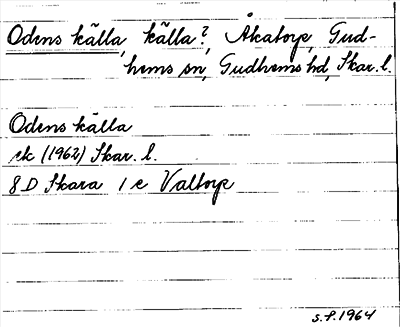 Odens källa, källa?, Åkatorp, Gud-
hems sn, Gudhems hd, Skar. l.
Odens källa
ek (1962) Skar. l.
8 D Skara 1 e Valtorp
s.f. 1964